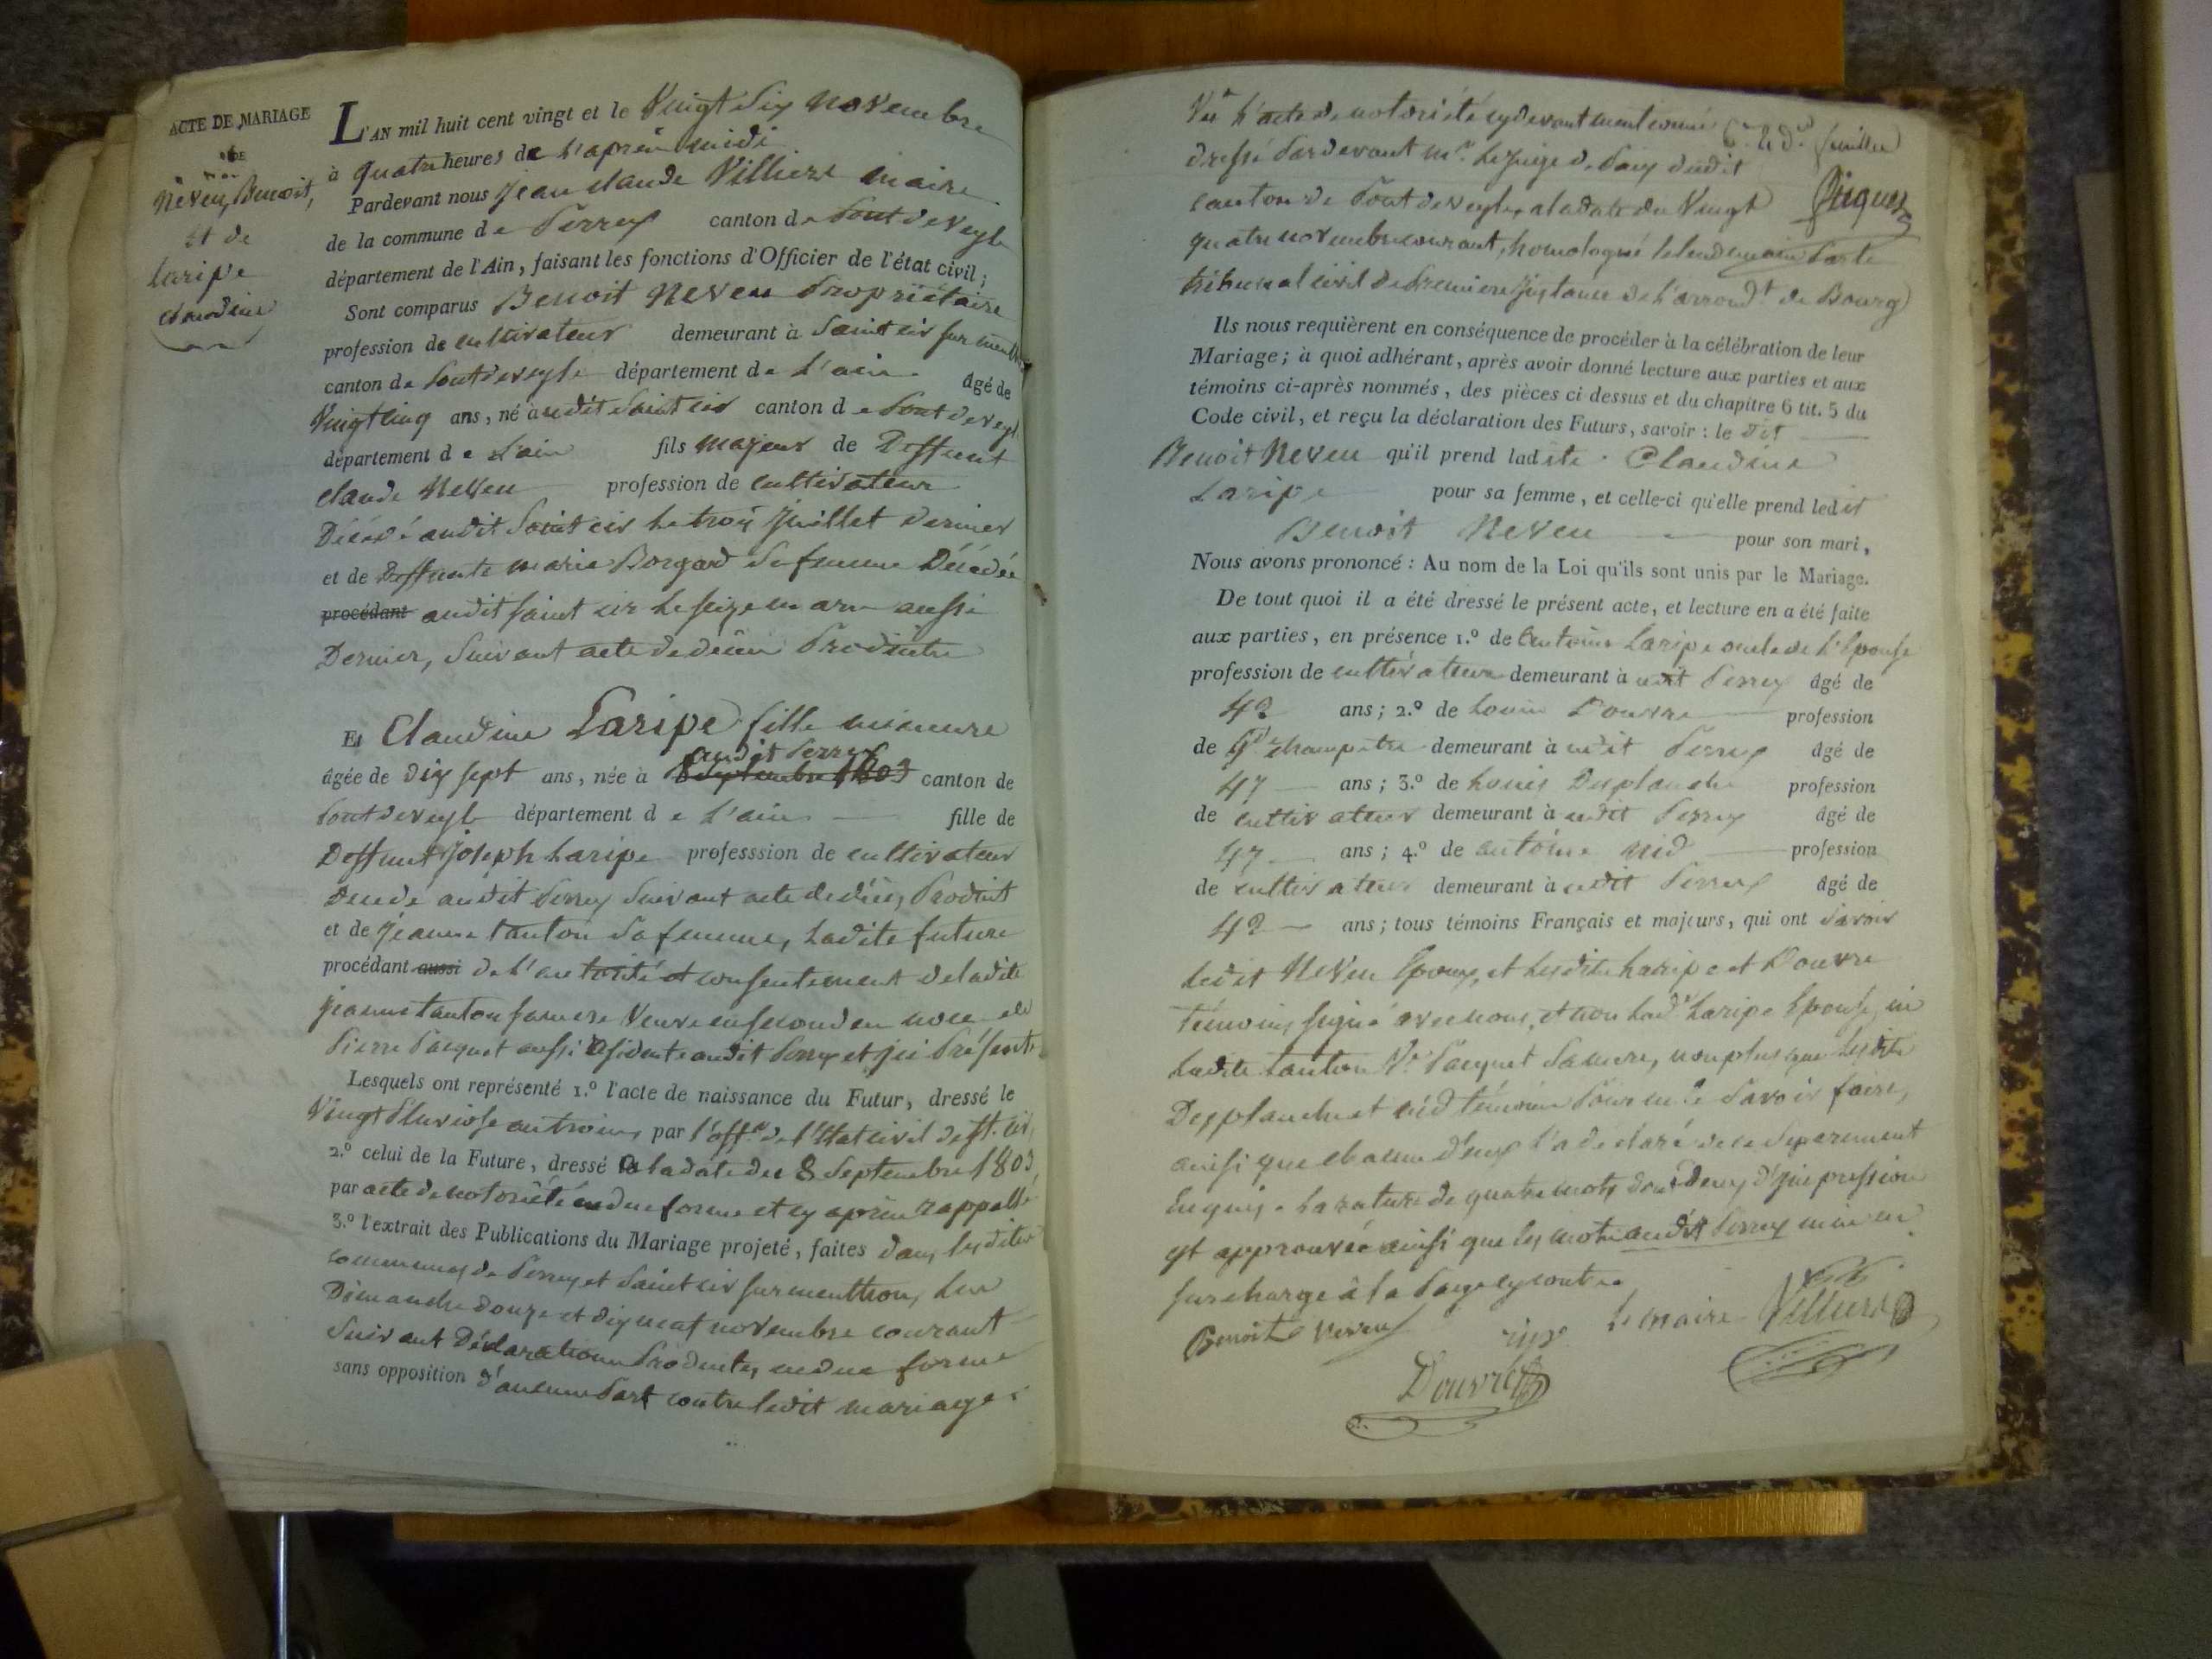 ACTE DE MARIAGE
DE
Neveu, Benoit,
et de
Laripe
Claudine
L'AN mil huit cent vingt et le Vingt Six Novembre
à quatre heures de l'après midi
Pardevant nous Jean Claude Villiers maire
de la commune de Perrex canton de Pontdeveyle
département de l'Ain, faisant les fonctions d'Officier de l'état civil;
Sont comparus Benoit Neveu Propriétaire
profession de cultivateur demeurant à Saint cir sur menthon
canton de Pontdeveyle département de L'ain âgé de
Vingt cinq ans, né audit Saint cir canton de Pont de veyle
département de L'ain fils majeur de Deffunt
Claude Neveu profession de cultivateur
Décédé audit Saint cir le trois Juillet dernier
et de Deffunte marie Borgard Sa femme Décédée
procédant audit Saint cir le seize mars aussi
Dernier, Suivant acte de décès Produits
Et Claudine Laripe fille mineure
audit Perrex
âgée de dix sept ans, née à 8 Septembre 1803 canton de
Pontdeveyle département de L'ain fille de
Deffunt Joseph Laripe professsion de cultivateur
Décédé audit Perrex Suivant acte de décès, Produit
et de Jeanne tanton Sa femme, Ladite future
procédant aussi de L'autorité et consentement de ladite
Jeanne tanton sa mere Veuve en second en noce de
Pierre Pacquet aussi résidente audit Perrex et ici Présente
Lesquels ont représenté 1.º l'acte de naissance du Futur, dressé le
Vingt Pluviose an trois, par l'off.er de l'Etat civil de St. cir,
2.º celui de la Future, dressé à la date du 8 Septembre 1803,
par acte de notoriété en due forme et cy après rappellé
3.º l'extrait des Publications du Mariage projeté, faites dans lesdites
communes de Perrex et Saint cir sur menthon, Les
Dimanche douze et dix neuf novembre courant
Suivant Déclarations Produites, en due forme
sans opposition d'aucune Part contre ledit mariage.
Vu L'acte de notoriété cy devant mentionné
dressé Pardevant Mr. Le Juge de Paix dudit
canton de Pont de veyle, a la date du Vingt
quatre novembre courant, homologué le lendemain Par le
tribunal civil de Premiere Instance de L'arrond.t de Bourg
Ils nous requièrent en conséquence de procéder à la célébration de leur
Mariage; à quoi adhérant, après avoir donné lecture aux parties et aux
témoins ci-après nommés, des pièces ci dessus et du chapitre 6 tit. 5 du
Code civil, et reçu la déclaration des Futurs, savoir: le dit
Benoit Neveu qu'il prend ladite Claudine
Laripe pour sa femme, et celle-ci qu'elle prend ledit
Benoit Neveu pour son mari,
Nous avons prononcé: Au nom de la Loi qu'ils sont unis par le Mariage.
De tout quoi il a été dressé le présent acte, et lecture en a été faite
aux parties, en présence 1.º de Antoine Laripe oncle de L'Epouse
profession de cultivateur demeurant à udit Perrex âgé de
42 ans; 2.º de Louis Douvre profession
de Gd champetre demeurant à udit Perrex âgé de
47 ans; 3.º de Louis Desplanche profession
de cultivateur demeurant à udit Perrex âgé de
47 ans; 4.º de antoine Nid profession
de cultivateur demeurant à udit Perrex âgé de
42 ans; tous témoins Français et majeurs, qui ont Savoir
Ledit Neveu Epoux, et Lesdits Laripe et Douvre
témoins signé avec nous, et non Lad.e Laripe Epouse, ni
Ladite tanton Ve. Pacquet Sa mere, non plus que Lesdits
Desplanche et nid témoins Pour ne le Savoir faire,
ainsi que chacun d'eux l'a déclaré de ce Séparément
Enquis. La rature de quatre mots dont Deux d'impression
est approuvée ainsi que les mots audit Perrex mis en
surcharge à la Page cy contre
Benoit Neveu
Le maire Villiers
Douvre